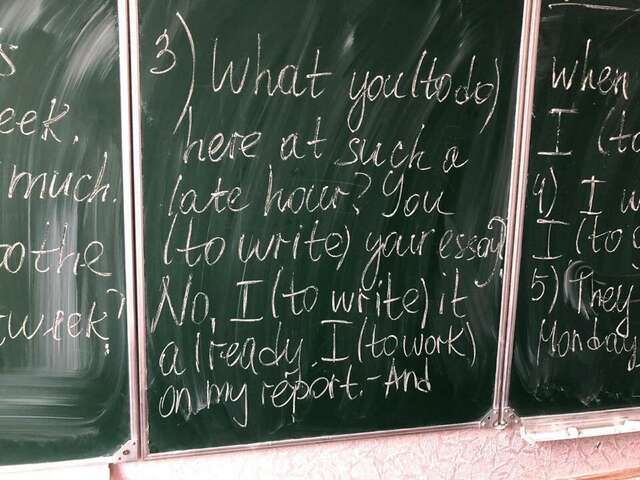 eek.
much.
week?
3) What you (to do)
here at such a
late hour? You
(to write) your essay?
No, I (to write) it
already. I (to work)
on my report. - And
when
I (to
4) I w
I (to s
5) They
Monday